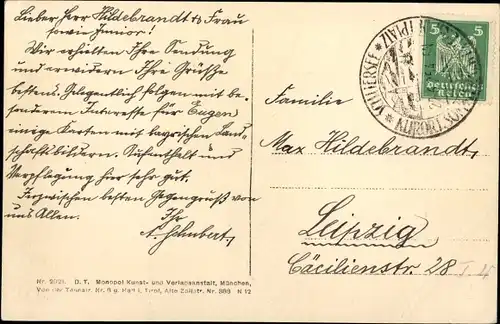 Lieber Herr Hildebrandt & Frau
sowie Junior!
Wir erhielten Ihre Sendung
und erwidern Ihre Grüße
bestens. Gelegentlich folgen mit be-
sonderem Interesse für Eugen
einige Karten mit bayrischen Land-
schaftsbildern. Aufenthalt und
Verpflegung hier sehr gut.
Inzwischen besten Gegengruß von
uns Allen.
Ihr
Familie
Max Hildebrandt,
Leipzig
Cäcilienstr. 28
5 5
Deutsches
Reich
Nr. 9021. D. T. Monopol Kunst- und Verlagsanstalt, München,